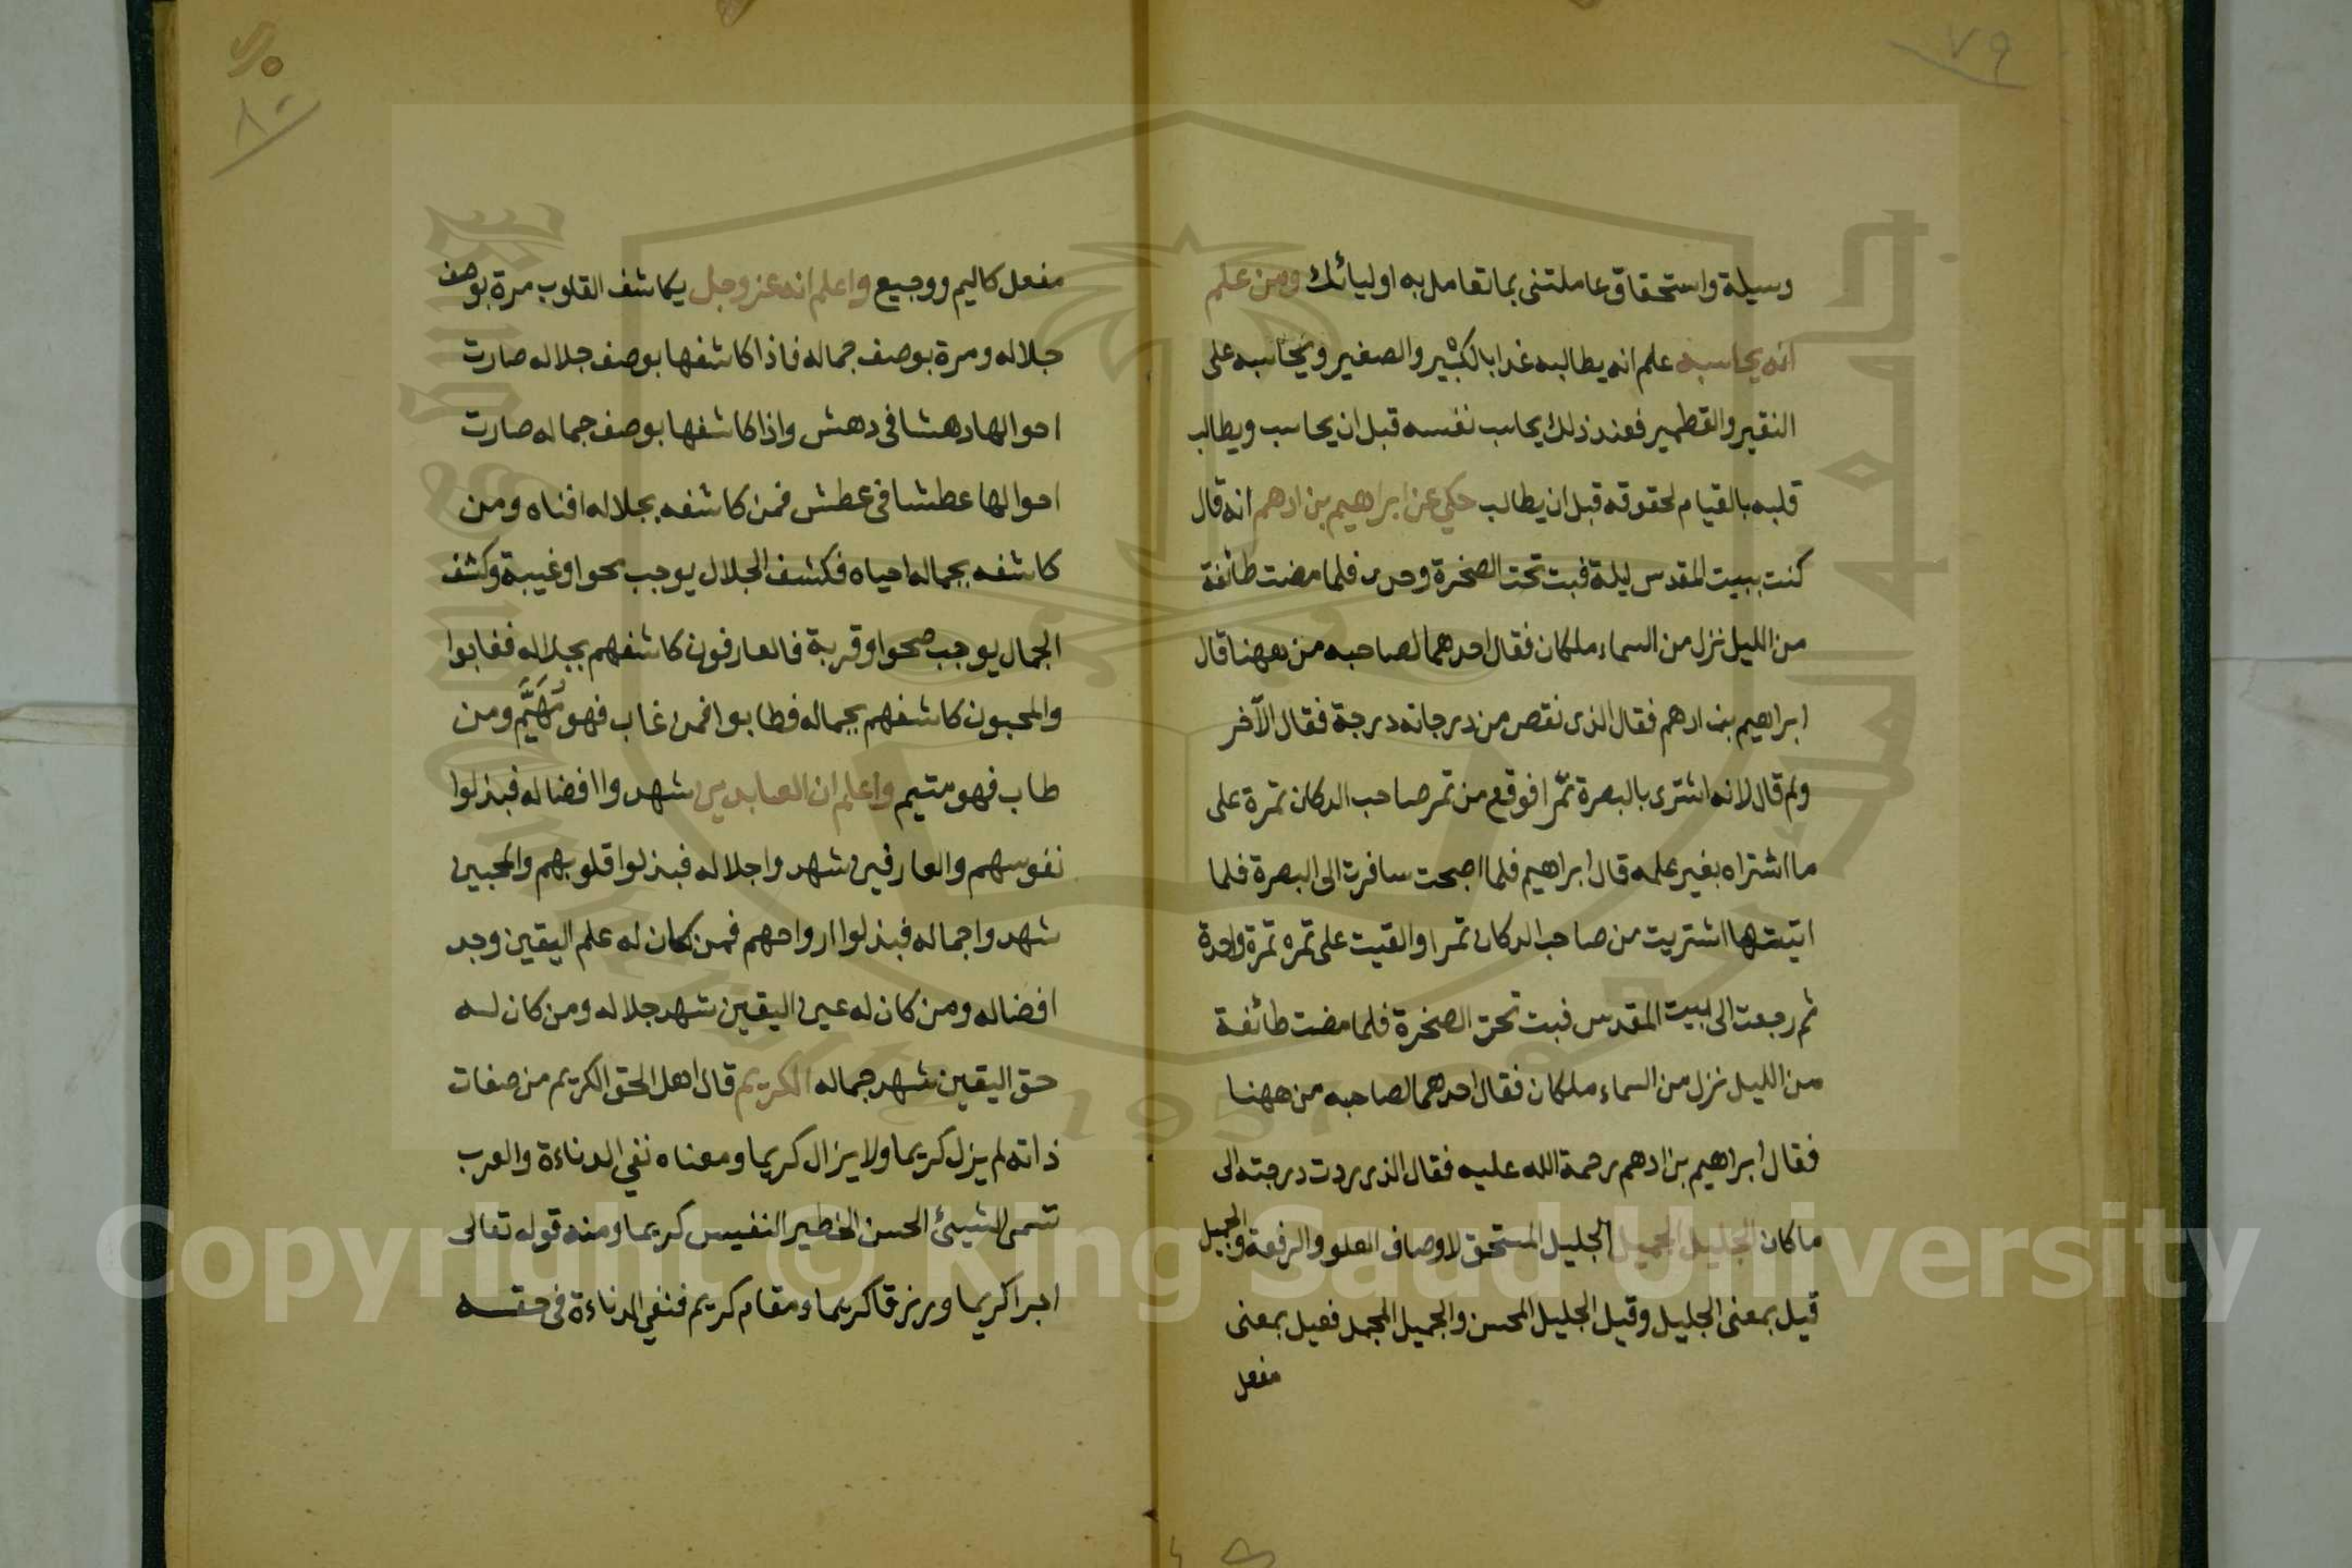 ٧٩
وسيلة واستحقاق عاملتنى بما تعامل به اوليائك ومن علم
انه يحاسبه علم انه يطالبه غدا بالكبير والصغير ويحاسبه على
النقير والقطمير فعند ذلك يحاسب نفسه قبل ان يحاسب ويطالب
قلبه بالقيام لحقوقه قبل ان يطالب حكي عن ابراهيم بن ادهم انه قال
كنت ببيت المقدس ليلة فبت تحت الصخرة وحدى فلما مضت طائفة
من الليل نزل من السماء ملكان فقال احدهما لصاحبه من ههنا قال
ابراهيم بن ادهم فقال الذى نقص من درجاته درجة فقال الآخر
ولم قال لانه اشترى بالبصرة تمرا فوقع من تمر صاحب الدكان تمرة على
ما اشتراه بغير علمه قال ابراهيم فلما اصبحت سافرت الى البصرة فلما
اتيتها اشتريت من صاحب الدكان تمرا والقيت على تمره تمرة واحدة
ثم رجعت الى بيت المقدس فبت تحت الصخرة فلما مضت طائفة
من الليل نزل من السماء ملكان فقال احدهما لصاحبه من ههنا
فقال ابراهيم بن ادهم رحمة الله عليه فقال الذى ردت درجته الى
ما كان الجليل الجميل الجليل المستحق لاوصاف العلو والرفعة والجميل
قيل بمعنى الجليل وقيل الجليل المحسن والجميل المجمل فعيل بمعنى
مفعل
٨٠
مفعل كاليم ووجيع واعلم انه عز وجل يكاشف القلوب مرة بوصف
جلاله ومرة بوصف جماله فاذا كاشفها بوصف جلاله صارت
احوالها دهشا فى دهش واذا كاشفها بوصف جماله صارت
احوالها عطشا فى عطش فمن كاشفه بجلاله افناه ومن
كاشفه بجماله احياه فكشف الجلال يوجب محوا وغيبة وكشف
الجمال يوجب صحوا وقربة فالعارفون كاشفهم بجلاله فغابوا
والمحبون كاشفهم بجماله فطابوا فمن غاب فهو مُهَيَّم ومن
طاب فهو متيم واعلم ان العابدين شهدوا افضاله فبذلوا
نفوسهم والعارفين شهدوا جلاله فبذلوا قلوبهم والمحبين
شهدوا جماله فبذلوا ارواحهم فمن كان له علم اليقين وجد
افضاله ومن كان له عين اليقين شهد جلاله ومن كان له
حق اليقين شهد جماله الكريم قال اهل الحق الكريم من صفات
ذاته لم يزل كريما ولا يزال كريما ومعناه نفي الدناءة والعرب
تسمى الشيئ الحسن الخطير النفيس كريما ومنه قوله تعالى
اجرا كريما ورزقا كريما ومقام كريم فنفي الدناءة فى حقه
Copyright © King Saud University
1957